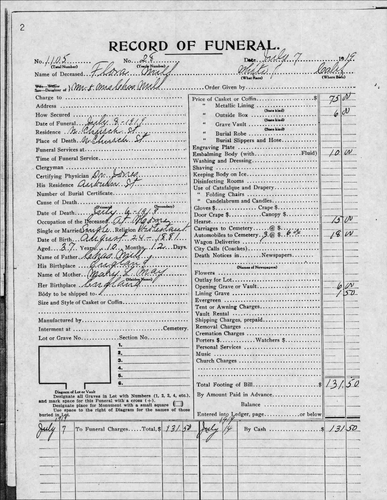 2
RECORD OF FUNERAL.
No. 1105 No. 28 Date July 7 1919
(Total Number) (Yearly Number)
Name of Deceased Flora White
(What Race) (Where Born)
Order Given by
Charge to
Address
How Secured
Date of Funeral July 8-1919
Residence N. Church St
Place of Death N Church St
Funeral Services at
Time of Funeral Service
Clergyman
Certifying Physician Dr. Jones
His Residence Auburn St
Number of Burial Certificate
Cause of Death
Date of Death July 6-1919
Occupation of the Deceased At Home
Single or Married Single Religion Protestant
Date of Birth August 24-1881
Aged 37 Years 10 Months 12 Days
Name of Father
His Birthplace England
Name of Mother Mary E. May
Her Birthplace England
Body to be shipped to
Size and Style of Casket or Coffin
Manufactured by
Interment at Cemetery.
Lot or Grave No. Section No.
1.
2.
3.
4.
5.
6.
Diagram of Lot or Vault
Designate all Graves in Lot with Numbers (1, 2, 3, 4, etc.) and mark space for this Funeral with a cross (+).
Designate place for Monument with a small square
Use space to the right of Diagram for the names of those buried in Lot.
Price of Casket or Coffin $ 75 00
(State kind)
" Metallic Lining
" Outside Box 6 00
(State kind)
" Grave Vault
(State kind)
" Burial Robe
" Burial Slippers and Hose
Engraving Plate
Embalming Body (with Fluid) 10 00
Washing and Dressing
Shaving
Keeping Body on Ice
Disinfecting Rooms
Use of Catafalque and Drapery
" Folding Chairs
" Candelabrum and Candles
Gloves $ Crape $
Door Crape $ Canopy $
Hearse 15 00
Carriages to Cemetery @ $
Automobiles to Cemetery 3 @ $ 6 18 00
Wagon Deliveries
City Calls (Coaches)
Death Notices in Newspapers
(Names of Newspapers)
Flowers
Outlay for Lot
Opening Grave or Vault 6 00
Lining Grave 1 50
Evergreen
Tent or Awning Charges
Vault Rental
Shipping Charges, prepaid
Removal Charges
Cremation Charges
Porters $ Watchers $
Personal Services
Music
Church Charges
Total Footing of Bill $ 131 50
By Amount Paid in Advance
Balance
Entered into Ledger, page or below.
1919
July 7 To Funeral Charges Total, $ 131.50
1919
July 14 By Cash $ 131 50